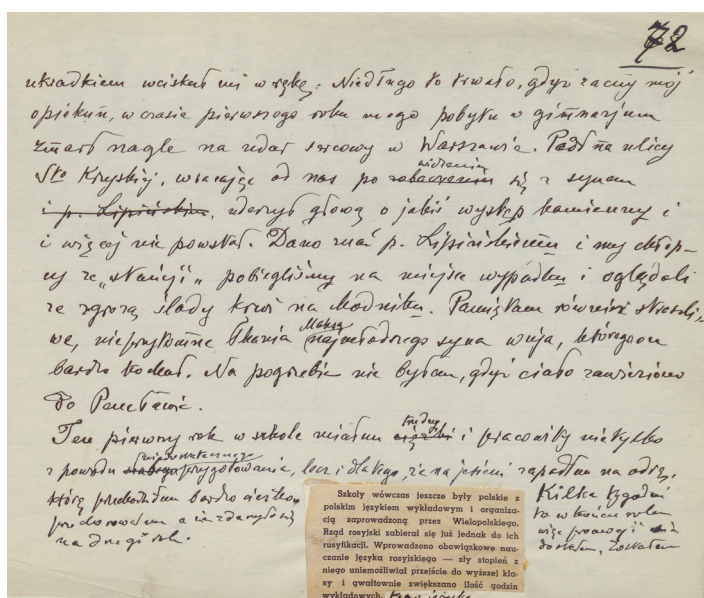 72
ukradkiem wciskał mi w rękę. Niedługo to trwało, gdyż zacny mój
opiekun, w czasie pierwszego roku mego pobytu w gimnazjum
zmarł nagle na udar sercowy w Warszawie. Padł na ulicy
Sto Krzyskiej, wracając od nas po widzeniu się z synem
i p. Lipińskim, uderzył głową o jakiś występ kamienny i
i więcej nie powstał. Dano znać p. Lipińskiemu i my chłop-
cy ze „stancji" pobiegliśmy na miejsce wypadku i oglądali
ze zgrozą ślady krwi na chodniku. Pamiętam również straszli-
we, nieprzytomne łkania najmłodszego syna wuja, którego on
bardzo kochał. Na pogrzebie nie byłam, gdyż ciało zawieziono
do
Ten pierwszy rok w szkole miałam trudny i pracowity nietylko
z powodu przygotowania, lecz i dlatego, że na jesieni zapadłam na odrę,
którą przechodziłam bardzo ciężko.
na drugi rok.
Kilka tygodni
Szkoły wówczas jeszcze były polskie z
polskim językiem wykładowym i organiza-
cją zaprowadzoną przez Wielopolskiego.
Rząd rosyjski zabierał się już jednak do ich
rusyfikacji. Wprowadzono obowiązkowe nau-
czanie języka rosyjskiego — zły stopień z
niego uniemożliwiał przejście do wyższej kla-
sy i gwałtownie zwiększano ilość godzin
wykładowych.